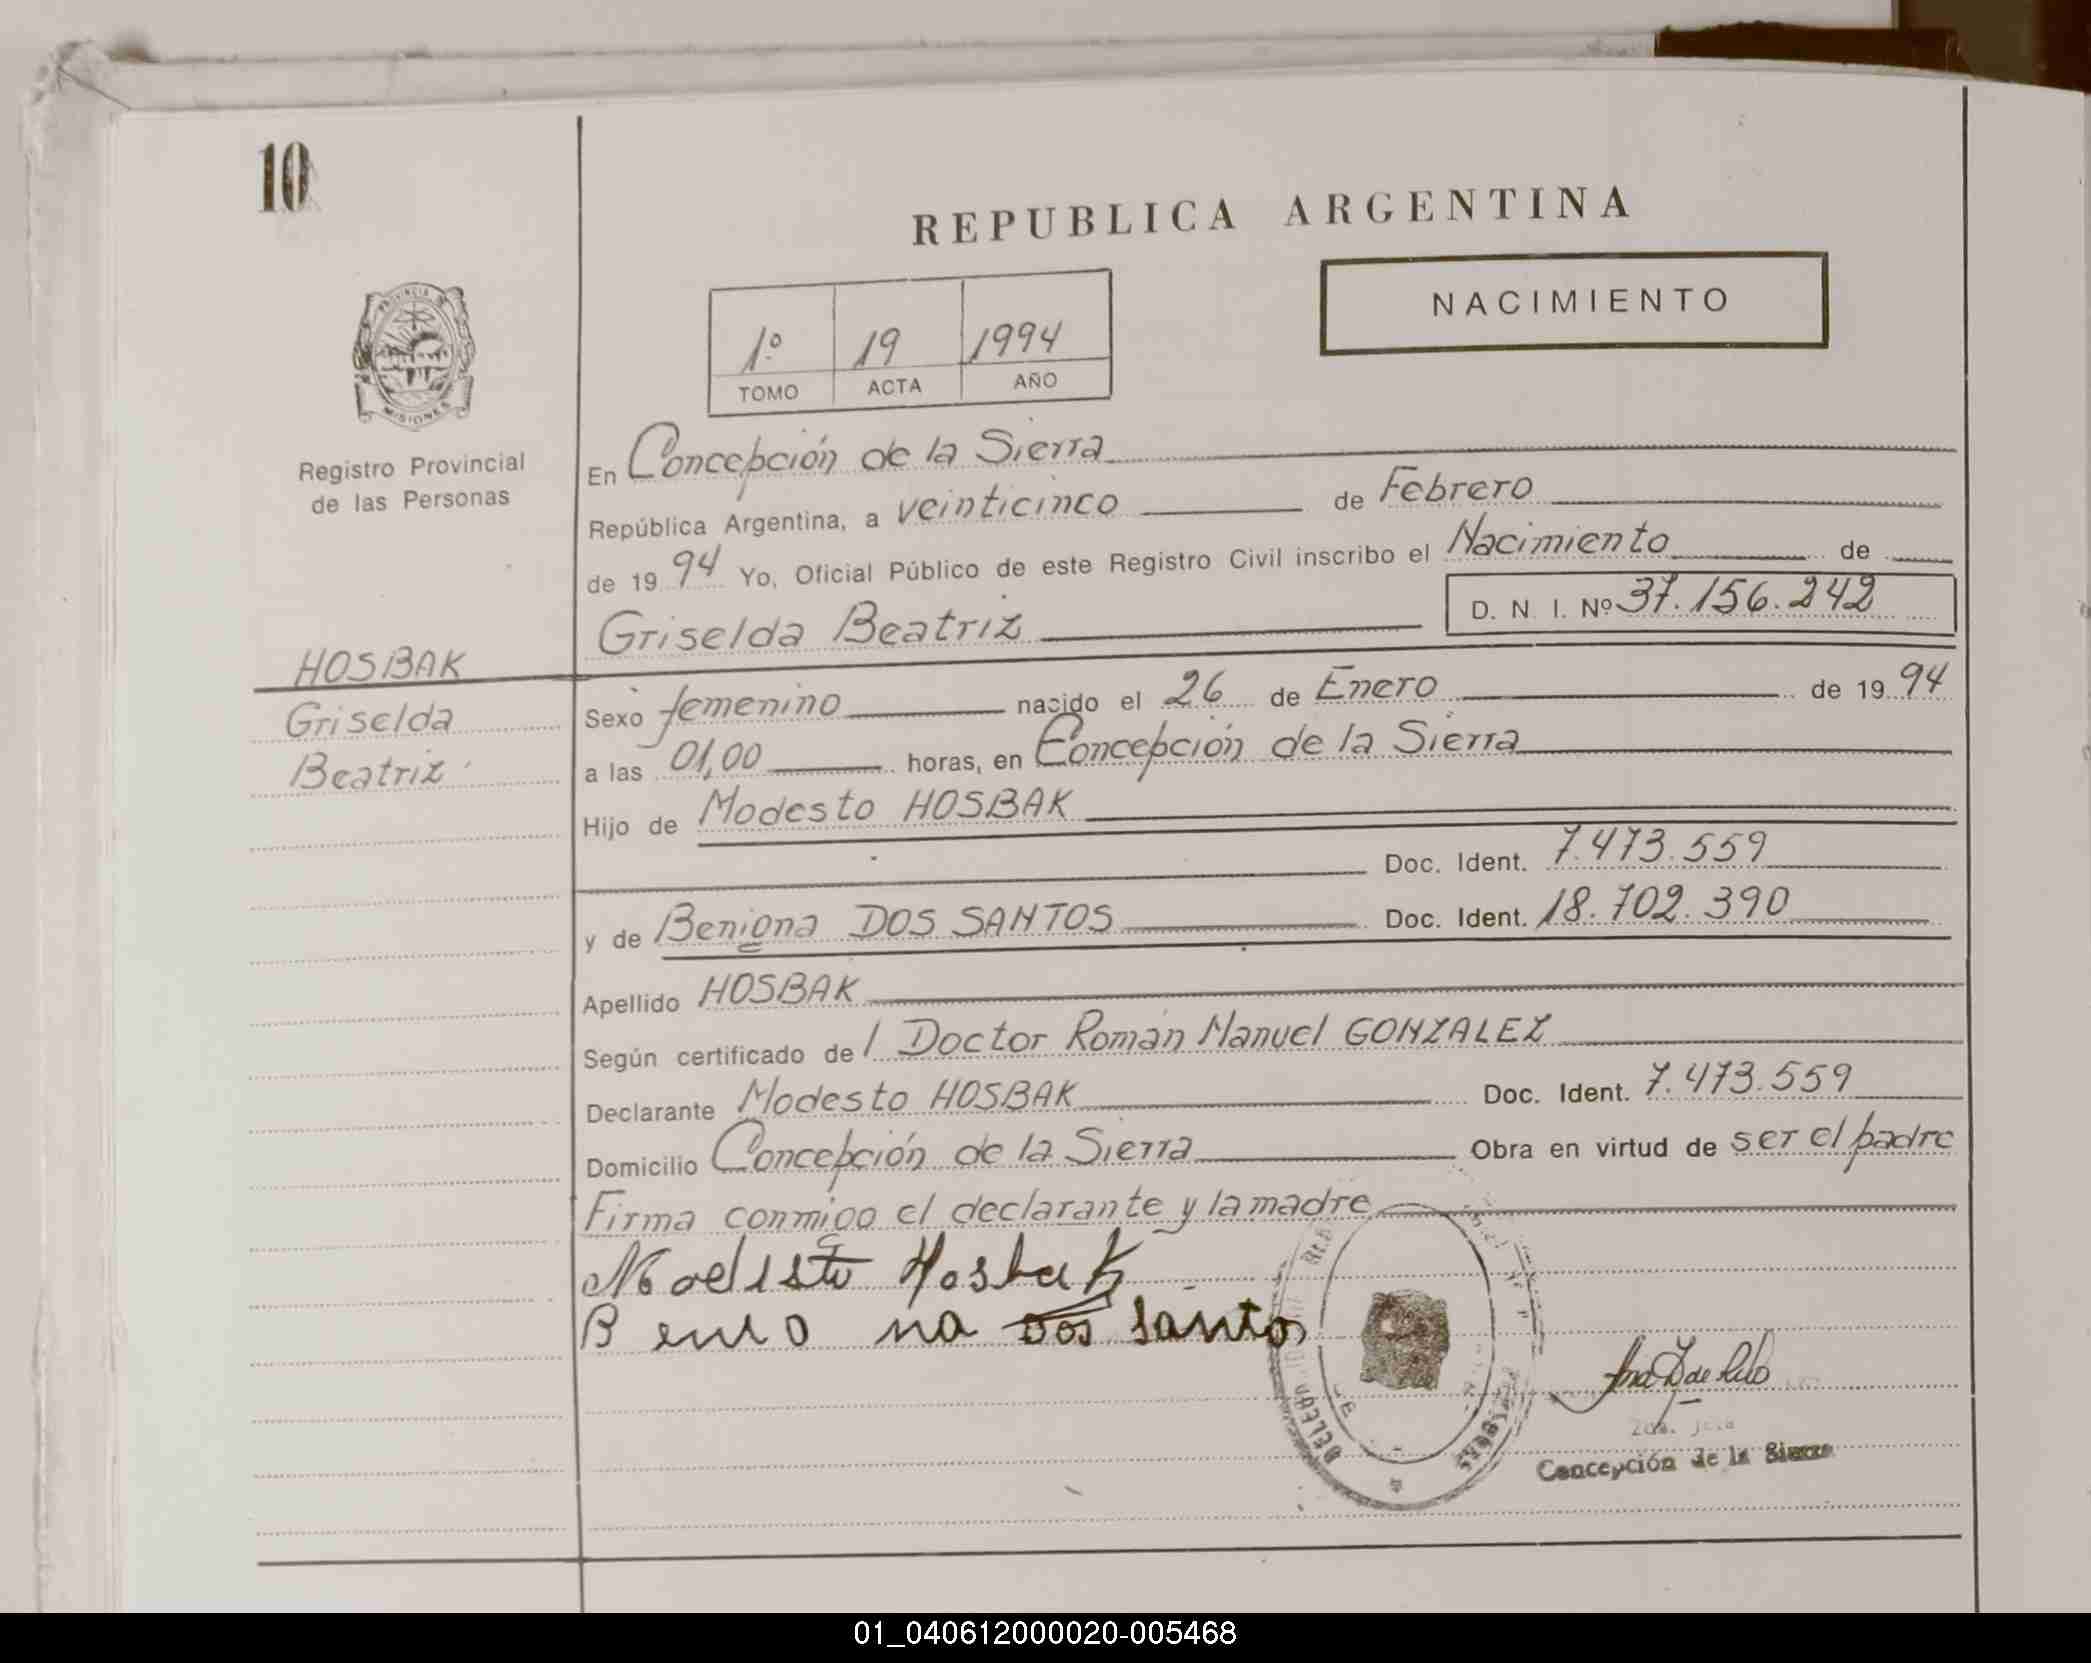 10
REPUBLICA ARGENTINA
NACIMIENTO
1º 19 1994
TOMO ACTA AÑO
PROVINCIA DE
MISIONES
Registro Provincial
de las Personas
En Concepción de la Sierra
República Argentina, a veinticinco de Febrero
de 19 94 Yo, Oficial Público de este Registro Civil inscribo el Nacimiento de
D. N. I. Nº 37.156.242
Griselda Beatriz
HOSBAK
Griselda
Beatriz
Sexo femenino nacido el 26 de Enero de 19 94
a las 01,00 horas, en Concepción de la Sierra
Hijo de Modesto HOSBAK
Doc. Ident. 7.473.559
y de Benigna DOS SANTOS Doc. Ident. 18.702.390
Apellido HOSBAK
Según certificado de l Doctor Román Manuel GONZALEZ
Declarante Modesto HOSBAK Doc. Ident. 7.473.559
Domicilio Concepción de la Sierra Obra en virtud de ser el padre
Firma conmigo el declarante y la madre
Modesto Hosbak
Benig na dos santos
Concepción de la Sierra
01_040612000020-005468